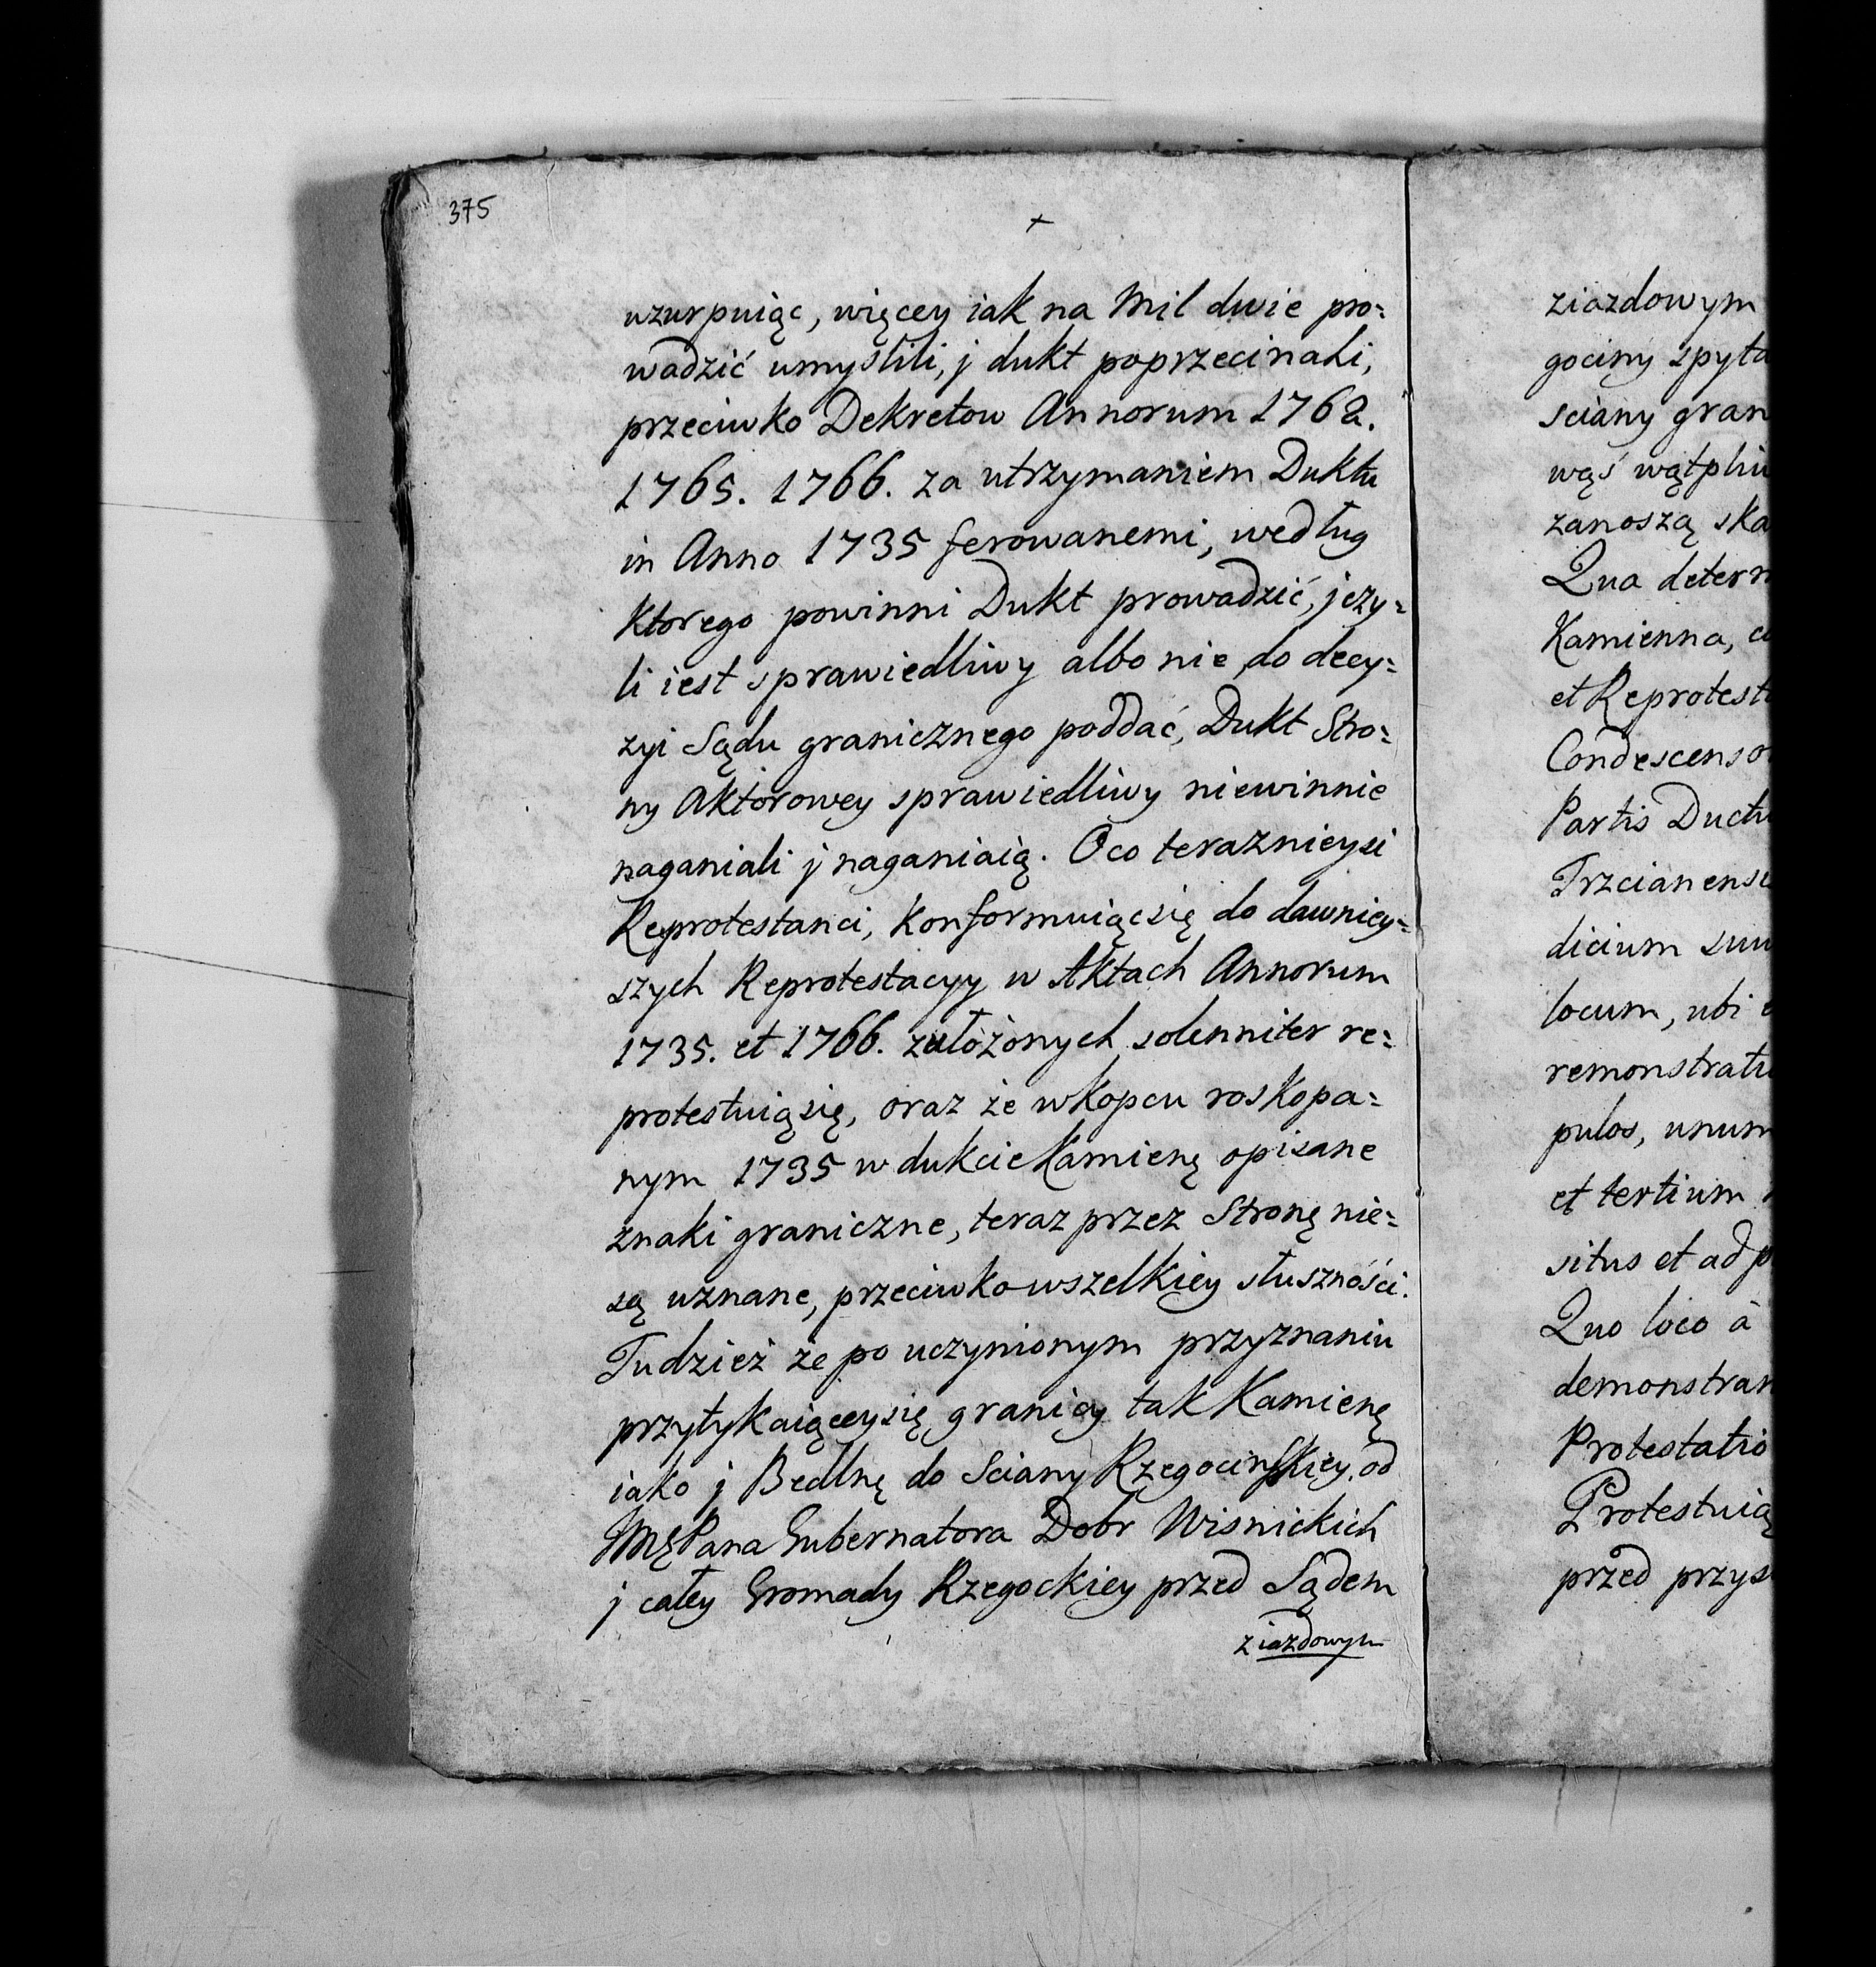 375
+
uzurpuiąc, więcey iak na Mil dwie pro=
wadzić umyslili, j dukt poprzecinali,
przeciwko Dekretow Annorum 1762.
1765. 1766. za utrzymaniem Duktu
in Anno 1735 ferowanemi, według
ktorego powinni Dukt prowadzić, jeży=
li iest sprawiedliwy albo nie, do decy=
zyi Sądu granicznego poddać, Dukt Stro=
ny Aktorowey sprawiedliwy niewinnie
naganiali j naganiaią. Oco teraznieysi
Reprotestanci, konformuiąc się do dawniey=
szych Reprotestacyy w Aktach Annorum
1735. et 1766. założonych, solenniter re=
protestuią się, oraz że w kopcu roskopa=
nym 1735 w dukcie Kamienę opisane
znaki graniczne, teraz przez Stronę nie=
są uznane, przeciwko wszelkiey słuszności.
Tudzież że po uczynionym przyznaniu
przytykaiącey się granicy tak Kamienę
iako j Bedlnę do Sciany Rzegocinskiey, od
JMĘPana Gubernatora Dobr Wisnickich
j całey Gromady Rzegockiey przed Sądem
ziazdowym
ziazdowym
gociny spyta
sciany gran
wąś wątpliw
zanoszą ska
Qua determ
Kamienna,
et Reprotest
Condescenso
Partis Duct
Trzcianens
dicium suu
locum, ubi
remonstratu
pulos, unum
et tertium
situs et ad p
Quo loco à
demonstran
Protestatio
Protestuią
przed przys